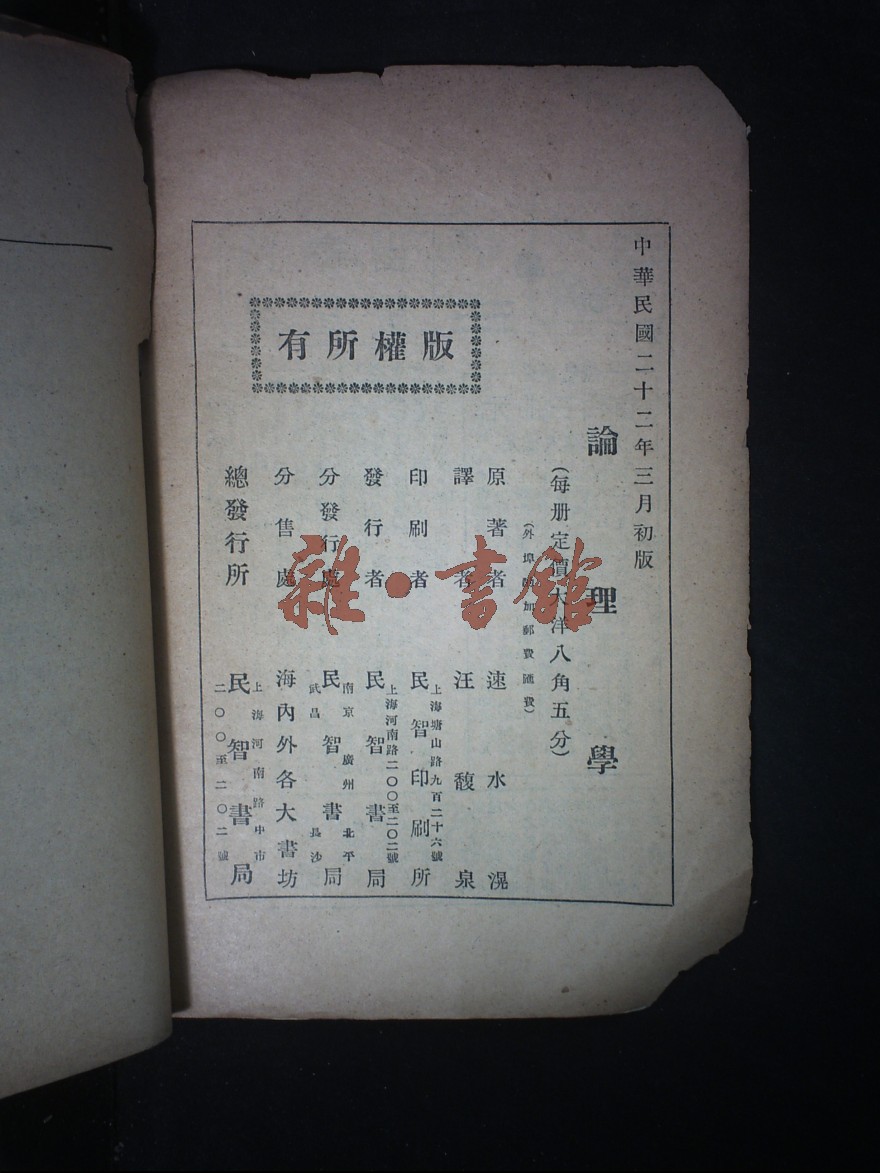 中華民國二十二年三月初版
論理學
(每册定價大洋八角五分)
(外埠加郵費匯費)
原著者 速水滉
譯者 汪馥泉
印刷者 上海塘山路九百二十六號 民智印刷所
發行者 上海河南路二〇〇至二〇二號 民智書局
分發行處 南京 廣州 北平 武昌 長沙 民智書局
分售處 海內外各大書坊
總發行所 上海河南路中市 二〇〇至二〇二號 民智書局
版權所有
雜·書館